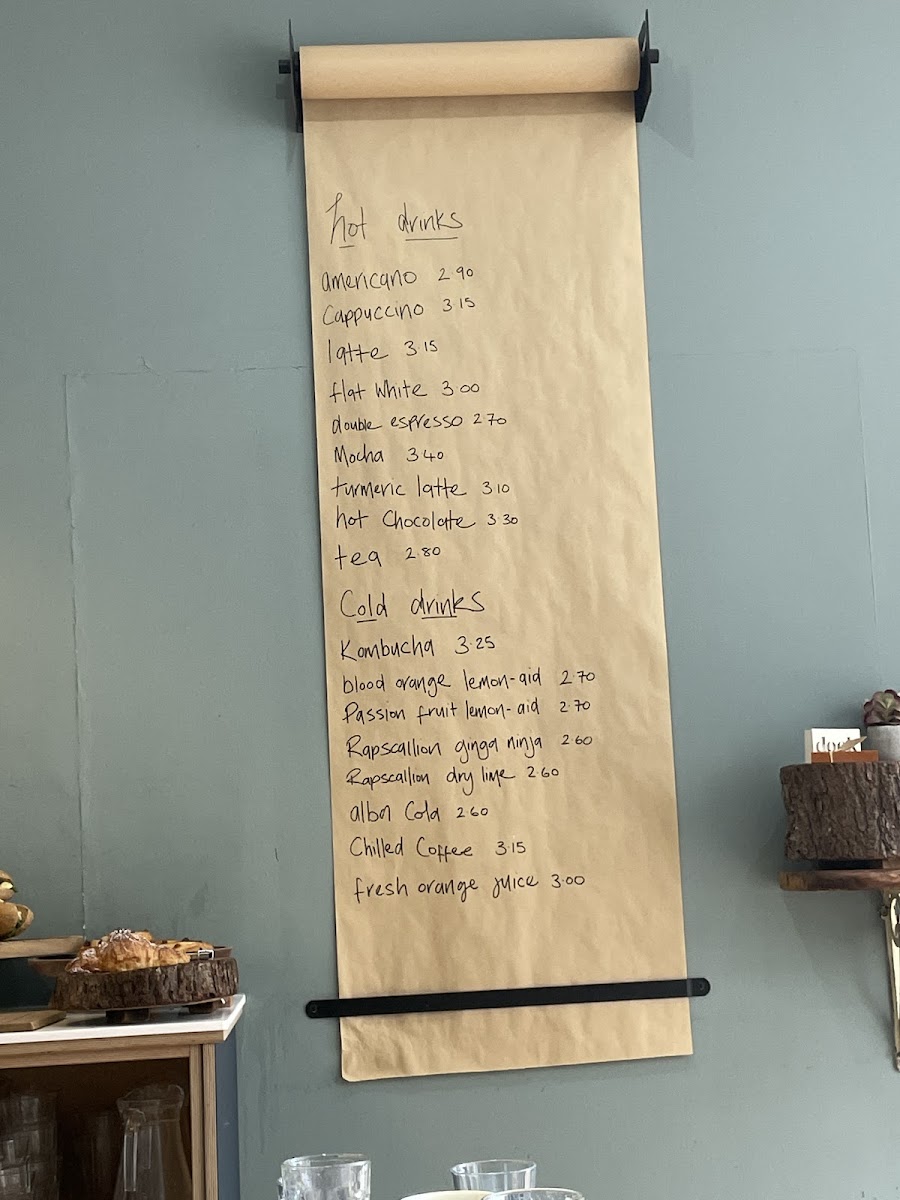 hot drinks
americano 2.90
Cappuccino 3.15
latte 3.15
flat white 3.00
double espresso 2.70
Mocha 3.40
turmeric latte 3.10
hot Chocolate 3.30
tea 2.80
Cold drinks
Kombucha 3.25
blood orange lemon-aid 2.70
Passion fruit lemon-aid 2.70
Rapscallion ginga ninja 2.60
Rapscallion dry lime 2.60
alba Cola 2.60
Chilled Coffee 3.15
fresh orange juice 3.00